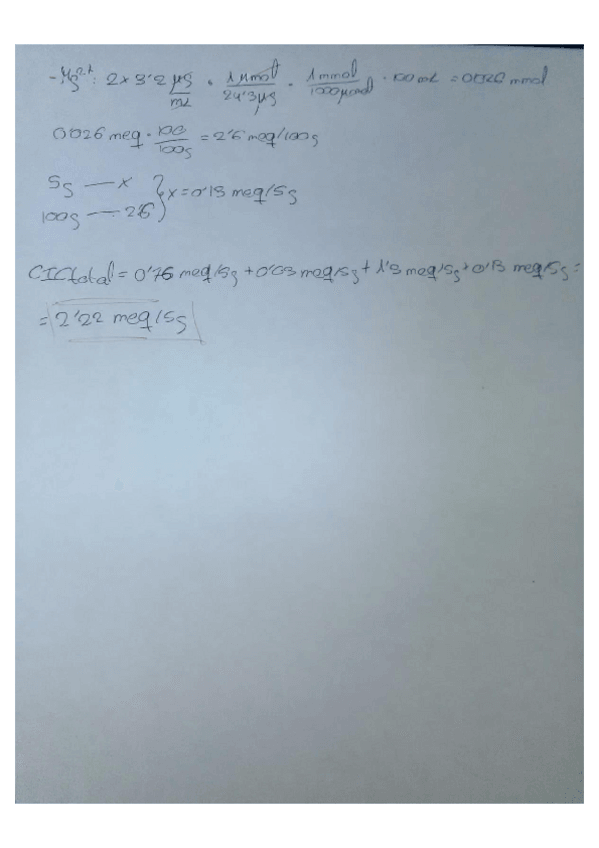 - Mg²⁺: 2 x 3'2 µg/mL · 1 µmol/24'3 µg · 1 mmol/1000 µmol · 100 mL = 0'026 mmol
0'026 meq · 100/100g = 2'6 meq/100g
5g — x } x = 0'13 meq/5g
100g — 2'6
CIC total = 0'76 meq/5g + 0'03 meq/5g + 1'3 meq/5g + 0'13 meq/5g =
= 2'22 meq/5g